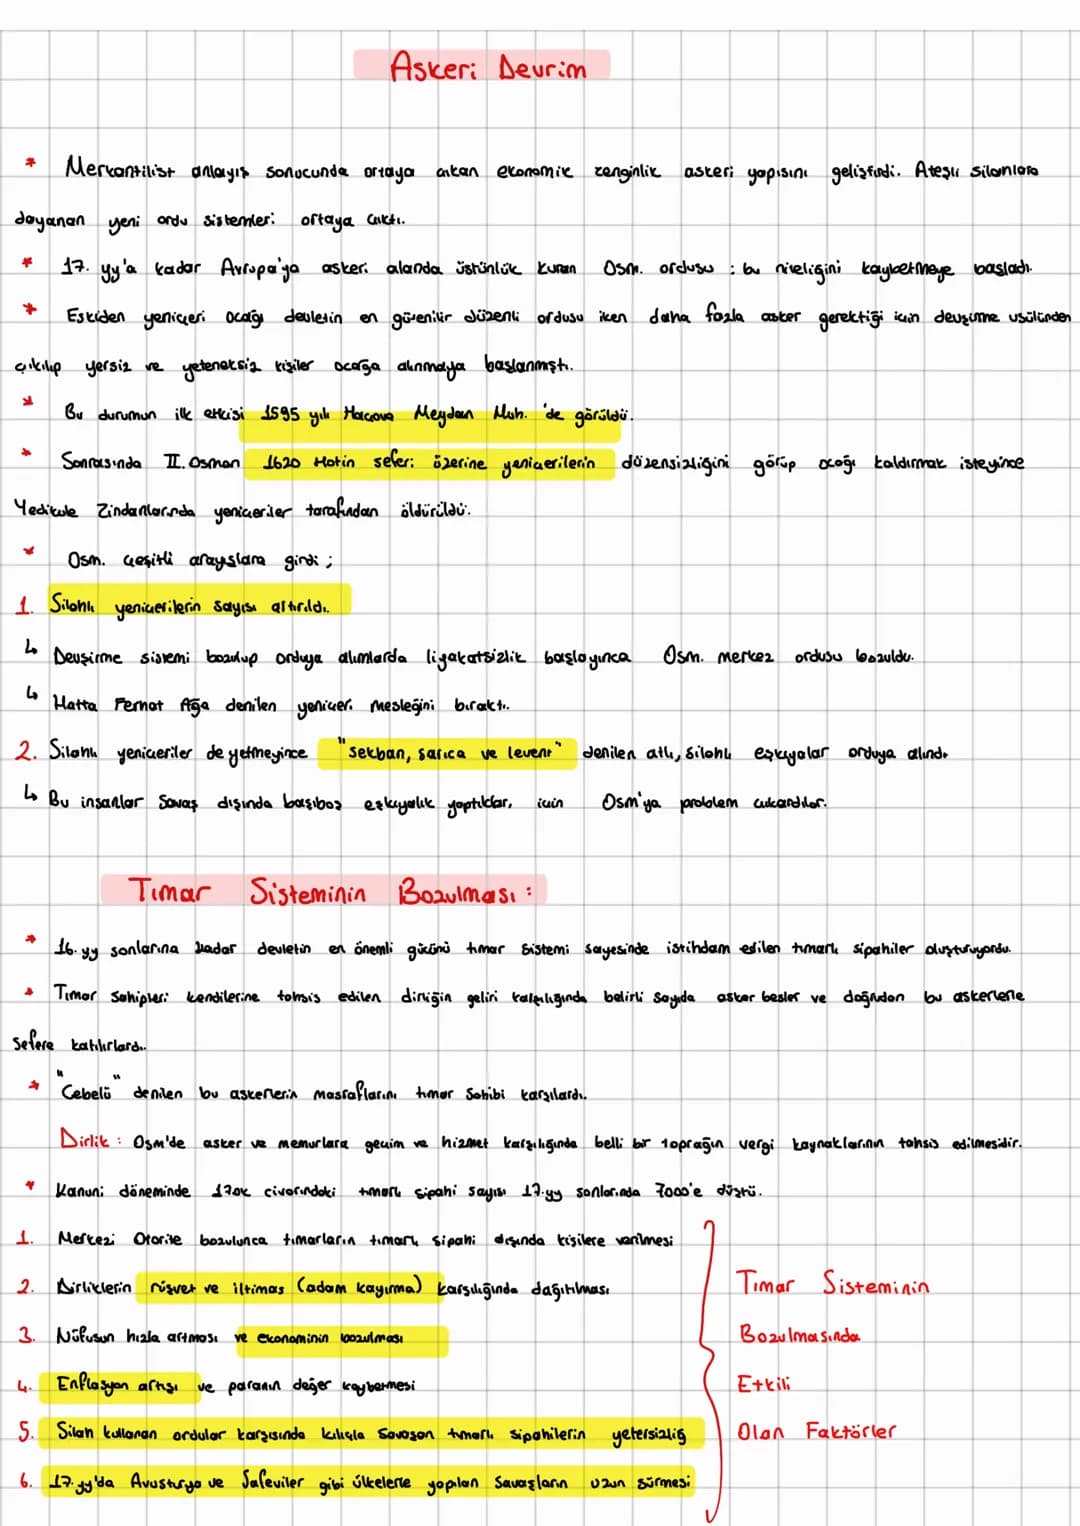 Askeri Devrim
* Merkantilist anlayış sonucunda ortaya çıkan ekonomik zenginlik askeri yapısını geliştirdi. Ateşli silahlara
dayanan yeni ordu sistemleri ortaya çıktı.
* 17. yy'a kadar Avrupa'ya askeri alanda üstünlük kuran Osm. ordusu : bu niteliğini kaybetmeye başladı.
* Eskiden yeniçeri ocağı devletin en güvenilir düzenli ordusu iken daha fazla asker gerektiği için devşirme usülünden
çıkılıp yersiz ve yeteneksiz kişiler ocağa alınmaya başlanmıştı.
* Bu durumun ilk etkisi 1595 yılı Haçova Meydan Muh. 'de görüldü.
* Sonrasında II. Osman 1620 Hotin seferi üzerine yeniçerilerin düzensizliğini görüp ocağı kaldırmak isteyince
Yedikule Zindanlarında yeniçeriler tarafından öldürüldü.
* Osm. çeşitli arayışlara girdi ;
1. Silahlı yeniçerilerin sayısı artırıldı.
↳ Devşirme sistemi bozulup orduya alımlarda liyakatsizlik başlayınca Osm. merkez ordusu bozuldu.
↳ Hatta Ferhat Ağa denilen yeniçeri mesleğini bıraktı.
2. Silahlı yeniçeriler de yetmeyince "sekban, sarıca ve levent" denilen atlı, silahlı eşkıyalar orduya alındı
↳ Bu insanlar Savaş dışında başıboş eşkıyalık yaptıkları için Osm'ya problem çıkardılar.
Tımar Sisteminin Bozulması :
* 16. yy sonlarına kadar devletin en önemli gücünü tımar sistemi sayesinde istihdam edilen tımarlı sipahiler oluşturuyordu.
* Tımar Sahipleri kendilerine tahsis edilen dirliğin geliri karşılığında belirli sayıda asker besler ve doğrudan bu askerlerle
Sefere katılırlardı.
* "Cebelü" denilen bu askerlerin masraflarını tımar Sahibi karşılardı.
Dirlik : Osm'de asker ve memurlara geçim ve hizmet karşılığında belli bir toprağın vergi kaynaklarının tahsis edilmesidir.
* Kanuni döneminde 170k civarındaki tımarlı sipahi sayısı 17.yy sonlarında 7000'e düştü.
1. Merkezi Otorite bozulunca tımarların tımarlı sipahi dışında kişilere verilmesi
2. Dirliklerin rüşvet ve iltimas (adam kayırma) karşılığında dağıtılması
3. Nüfusun hızla artması ve ekonominin bozulması
4. Enflasyon artışı ve paranın değer kaybetmesi
5. Silah kullanan ordular karşısında kılıçla Savaşan tımarlı sipahilerin yetersizliği
6. 17.yy'da Avusturya ve Safeviler gibi ülkelerle yapılan Savaşların uzun sürmesi
Tımar Sisteminin
Bozulmasında
Etkili
Olan Faktörler